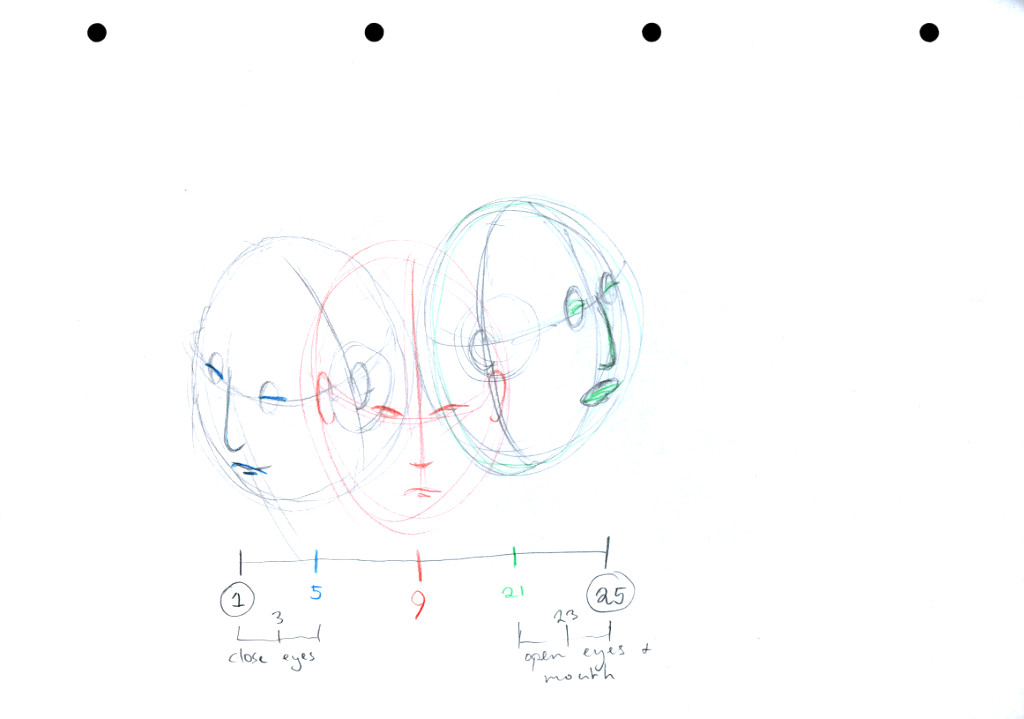 1 5 9 21 25
3 23
close eyes open eyes +
mouth